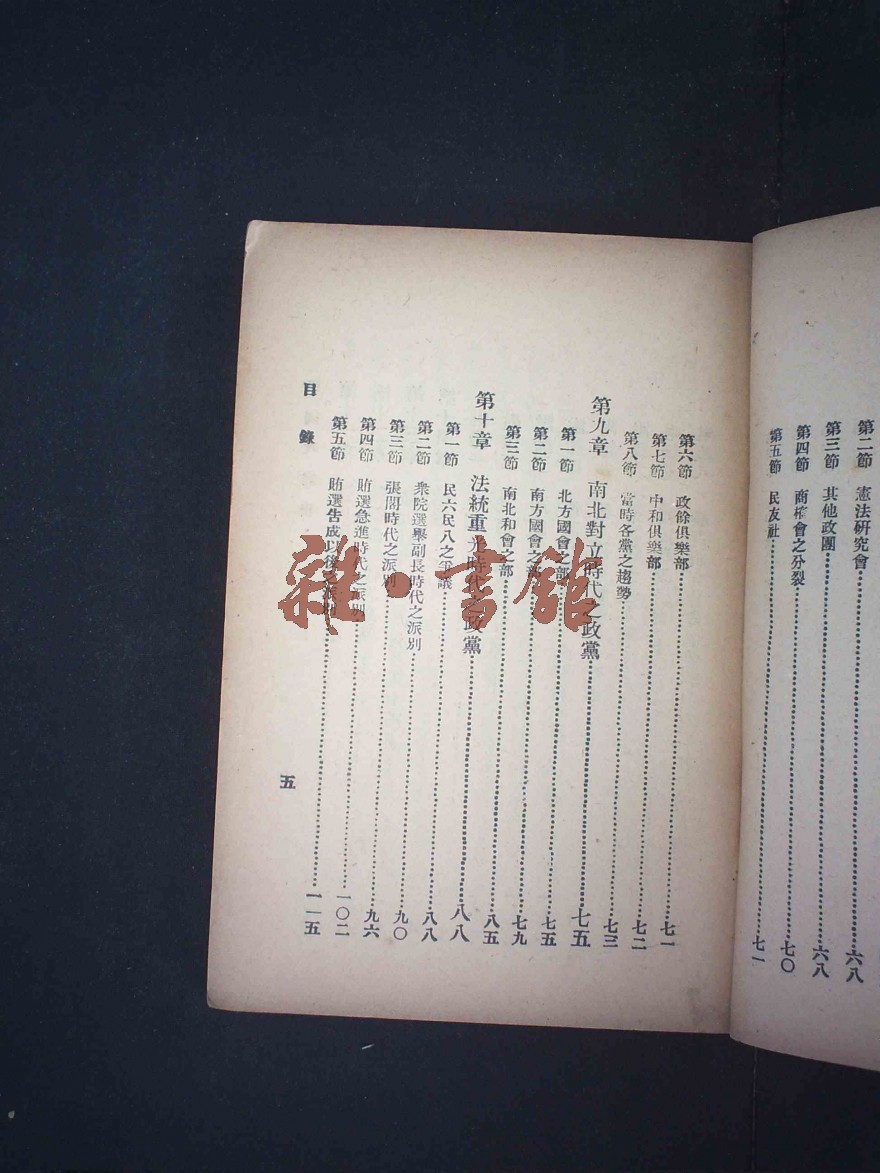 第二節　憲法研究會……六八
第三節　其他政團……六八
第四節　商榷會之分裂……七〇
第五節　民友社……七一
第六節　政餘俱樂部……七一
第七節　中和俱樂部……七二
第八節　當時各黨之趨勢……七三
第九章　南北對立時代之政黨……七五
第一節　北方國會之部……七五
第二節　南方國會之部……七九
第三節　南北和會之部……八五
第十章　法統重光時代之政黨……八八
第一節　民六民八之爭議……八八
第二節　衆院選舉副長時代之派別……九〇
第三節　張閣時代之派別……九六
第四節　賄選急進時代之派別……一〇二
第五節　賄選告成以後之派別……一一五
目錄
五
雜·書館